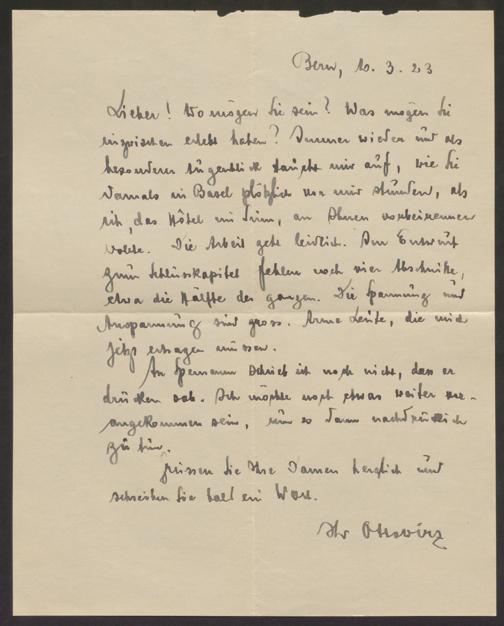 Bern, 10. 3. 23
Lieber! Wo mögen Sie sein? Was mögen Sie
inzwischen erlebt haben? Immer wieder und als
besonderer Augenblick taucht mir auf, wie Sie
damals in Basel plötzlich vor mir stunden, als
ich, das Hôtel im Sinn, an Ihnen vorbeirennen
wollte. Die Arbeit geht leidlich. Im Entwurf
zum Schlusskapitel fehlen noch vier Abschnitte,
etwa die Hälfte des ganzen. Die Spannung und
Anspannung sind gross. Arme Leute, die mich
jetzt ertragen müssen.
An Spemann schrieb ich noch nicht, dass er
drucken soll. Ich möchte noch etwas weiter vor-
angekommen sein, um es dann nachdrücklich
zu tun.
Grüssen Sie Ihre Damen herzlich und
schreiben Sie bald ein Wort.
Ihr